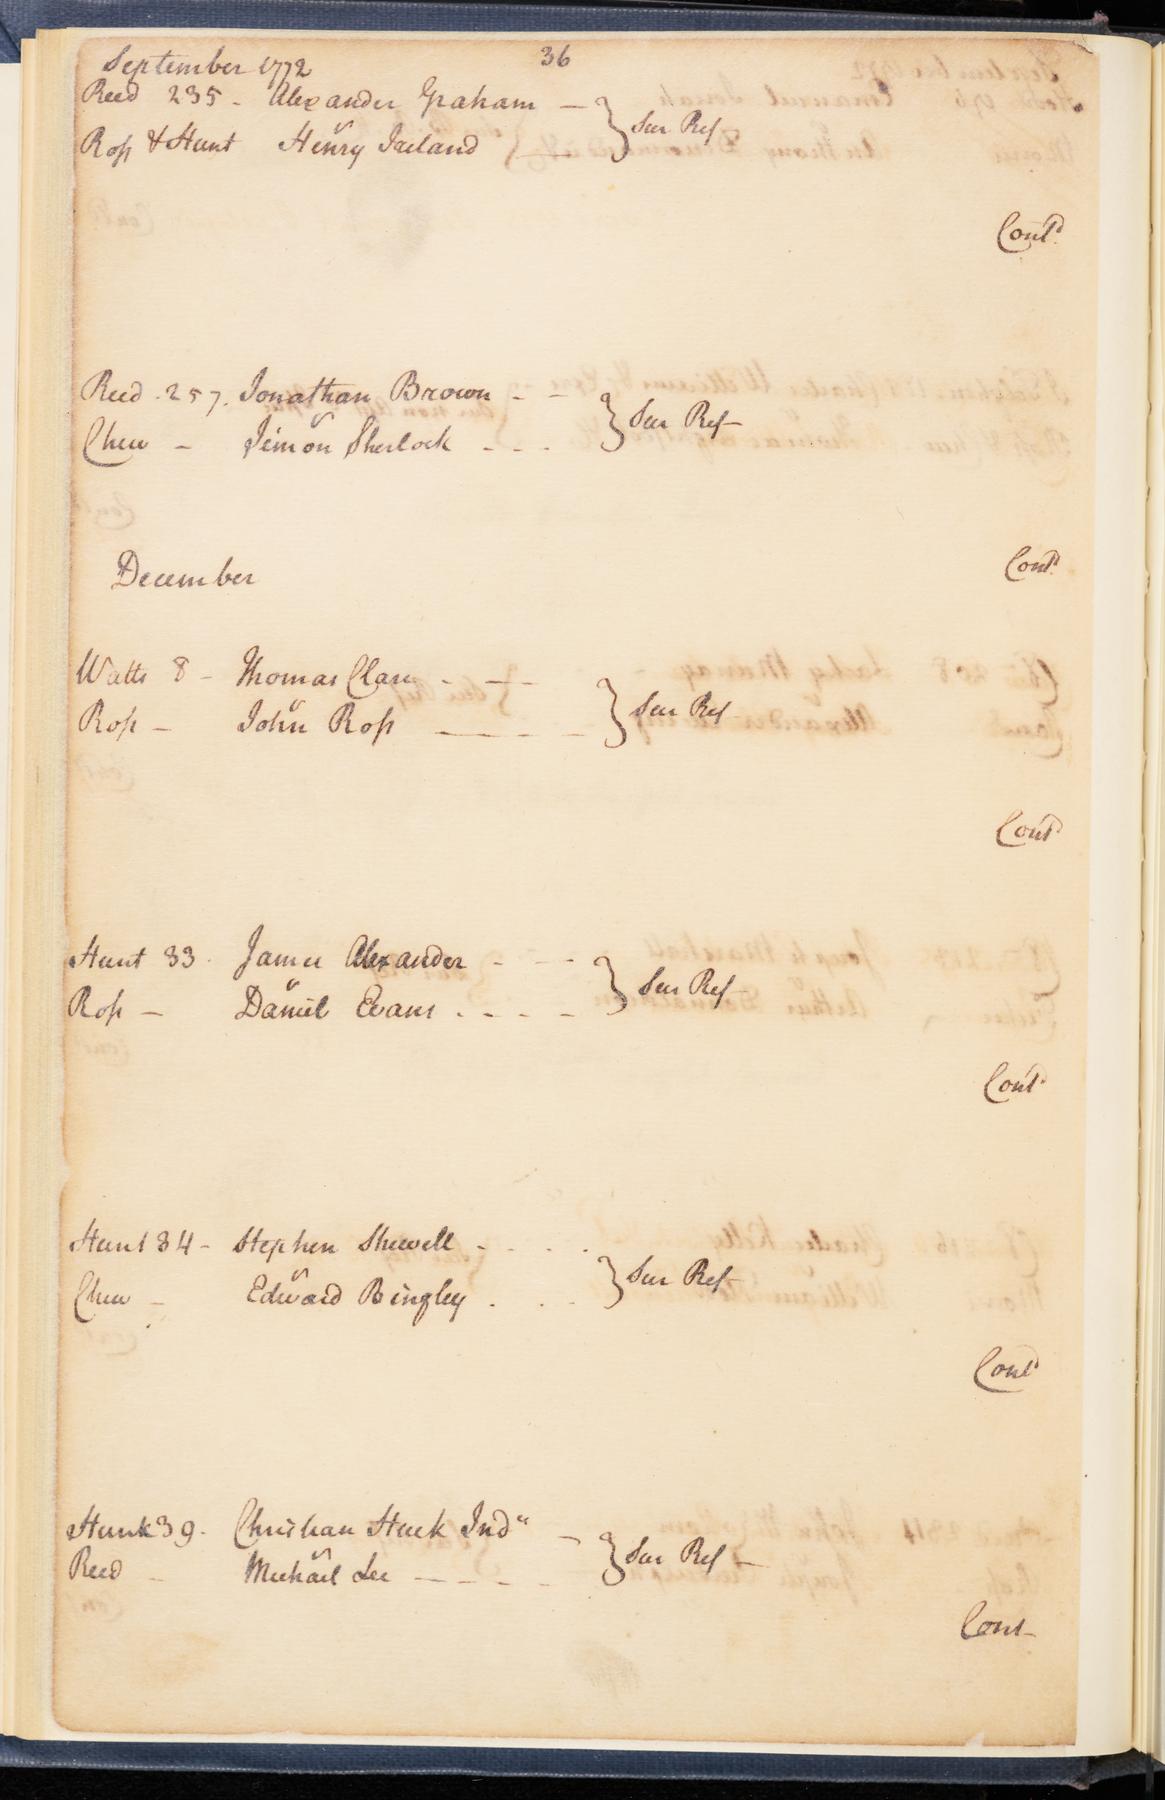 36
September 1772
Reed 235 - Alexander Graham —
} Sur Ref
v
Ross & Hunt Henry Ireland —
Contd
Reed . 257. Jonathan Brown - -
} Sur Ref
v
Chew - Simon Sherlock - - -
Contd
December
Watts 8 - Thomas Clare - —
} Sur Ref
v
Ross - John Ross — — — —
Contd
Hunt 33 . James Alexander - - -
} Sur Ref
v
Ross - Daniel Evans . - - -
Contd
Hunt 34 - Stephen Shewell - . . .
} Sur Ref
v
Chew - Edward Bingley . . -
Contd
Hunt 39 . Christian Stuck Ind" -
} Sur Ref -
v
Reed - Michael Lee — — - -
Cont